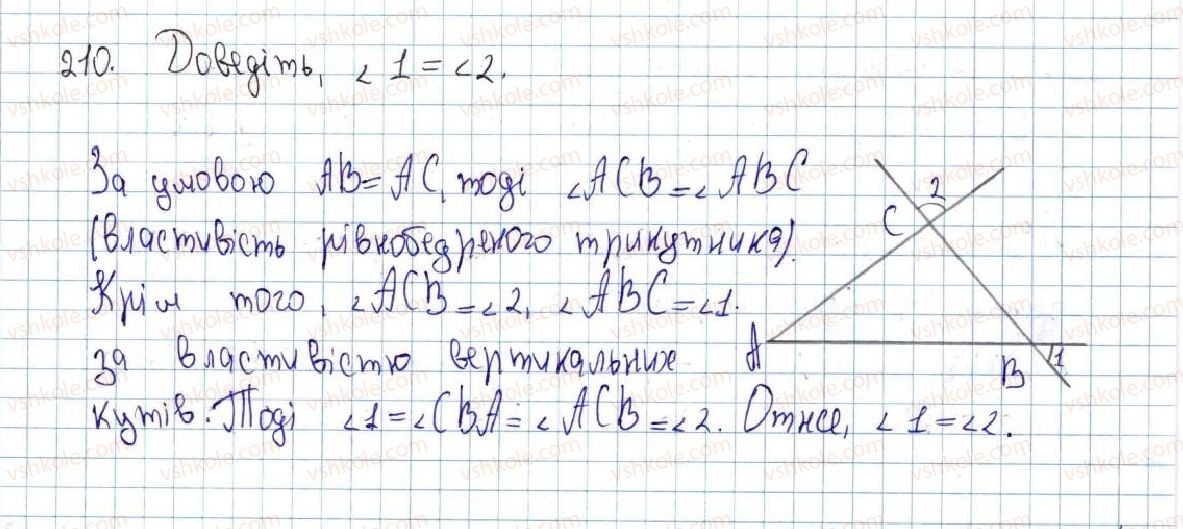 210. Доведіть, ∠1=∠2.
За умовою AB=AC, тоді ∠ACB=∠ABC
(властивість рівнобедреного трикутника).
Крім того, ∠ACB=∠2, ∠ABC=∠1.
за властивістю вертикальних
кутів. Тоді ∠1=∠CBA=∠ACB=∠2. Отже, ∠1=∠2.
C 2
A
B 1
vshkole.com